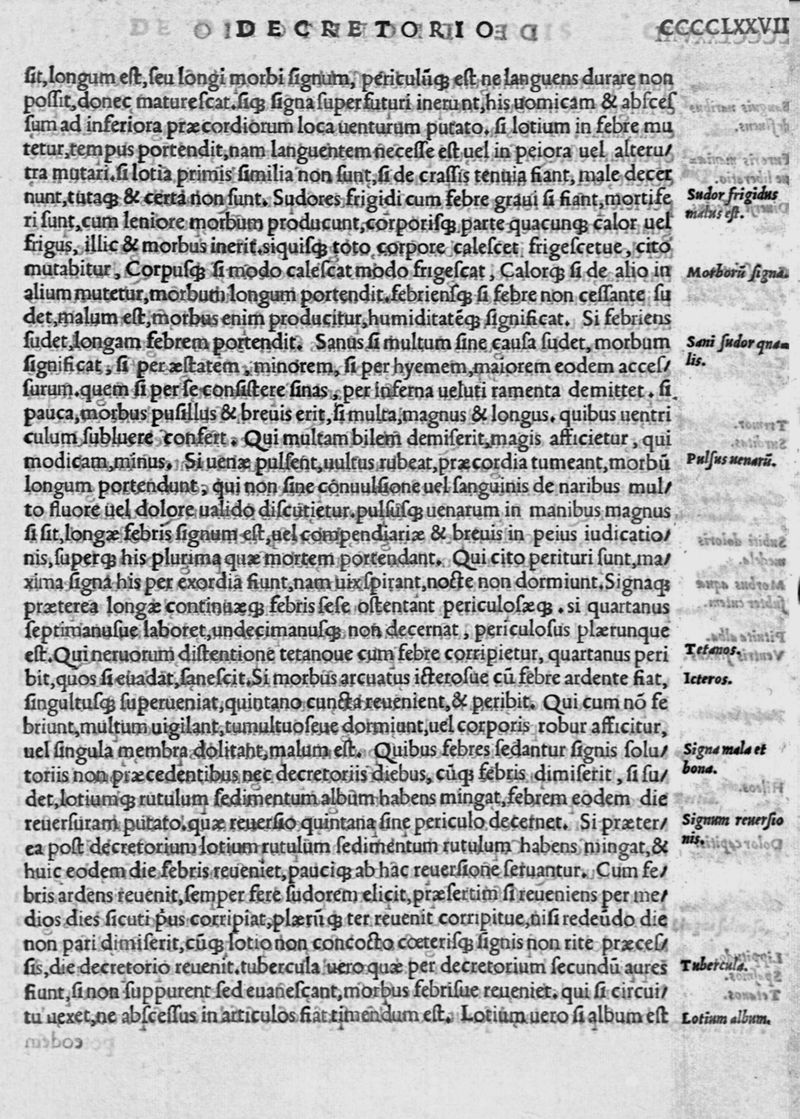 DECRETORIO CCCCLXXVII
sit,longum est,seu longi morbi signum, periculūq; est ne languens durare non
possit,donec maturescat.siq; signa superfuturi inerunt,his uomicam & absces
sum ad inferiora præcordiorum loca uenturum putato. si lotium in febre mu
tetur,tempus portendit,nam languentem necesse est uel in peiora uel alteru/
tra mutari.si lotia primis similia non sunt,si de crassis tenuia fiant, male decer
nunt,tutaq; & certa non sunt. Sudores frigidi cum febre graui si fiant,mortife
Sudor frigidus
ri sunt,cum leniore morbum producunt,corporisq; parte quacunq; calor uel
malus est.
frigus, illic & morbus inerit.siquisq; toto corpore calescet frigescetue, cito
mutabitur, Corpusq; si modo calescat modo frigescat, Calorq; si de alio in
Morborū signa.
alium mutetur,morbum longum portendit.febriensq; si febre non cessante su
det,malum est,morbus enim producitur,humiditatēq; significat. Si febriens
sudet,longam febrem portendit. Sanus si multum sine causa sudet, morbum
Sani sudor qua=
significat, si per æstatem, minorem, si per hyemem,maiorem eodem acces/
lis.
surum.quem si per se consistere sinas, per inferna ueluti ramenta demittet. si
pauca,morbus pusillus & breuis erit,si multa,magnus & longus. quibus uentri
culum subluere confert. Qui multam bilem demiserit,magis afficietur, qui
modicam,minus. Si uenæ pulsent,uultus rubeat,præcordia tumeant,morbū
Pulsus uenarū.
longum portendunt, qui non sine conuulsione uel sanguinis de naribus mul/
to fluore uel dolore ualido discutietur.pulsusq; uenarum in manibus magnus
si sit,longæ febris signum est,uel compendiariæ & breuis in peius iudicatio/
nis,superq; his plurima quæ mortem portendant. Qui cito perituri sunt,ma/
xima signa his per exordia fiunt,nam uix spirant,nocte non dormiunt.Signaq;
præterea longæ continuæq; febris sese ostentant periculosæq;. si quartanus
septimanusue laboret,undecimanusq; non decernat, periculosus plærunque
est.Qui neruorum distentione tetanoue cum febre corripietur, quartanus peri
Tetanos.
bit,quos si euadat,sanescit.Si morbus arcuatus icterosue cū febre ardente fiat,
Icteros.
singultusq; superueniat,quintano cuncta reuenient,& peribit. Qui cum nō fe
briunt,multum uigilant,tumultuoseue dormiunt,uel corporis robur afficitur,
uel singula membra dolitant,malum est. Quibus febres sedantur signis solu/
Signa mala et
toriis non præcedentibus nec decretoriis diebus, cūq; febris dimiserit, si su/
bona.
det,lotiumq; rutulum sedimentum album habens mingat,febrem eodem die
reuersuram putato.quæ reuersio quintana sine periculo decernet. Si præter/
Signum reuersio
ea post decretorium lotium rutulum sedimentum rutulum habens mingat,&
nis.
huic eodem die febris reueniet,pauciq; ab hac reuersione seruantur. Cum fe/
bris ardens reuenit,semper fere sudorem elicit,præsertim si reueniens per me/
dios dies sicuti pus corripiat,plærūq; ter reuenit corripitue,nisi redeūdo die
non pari dimiserit,cūq; lotio non concocto cœterisq; signis non rite præces/
sis,die decretorio reuenit.tubercula uero quæ per decretorium secundū aures
Tubercula.
fiunt,si non suppurent sed euanescant,morbus febrisue reueniet. qui si circui/
tu uexet,ne abscessus in articulos fiat timendum est. Lotium uero si album est
Lotium album.